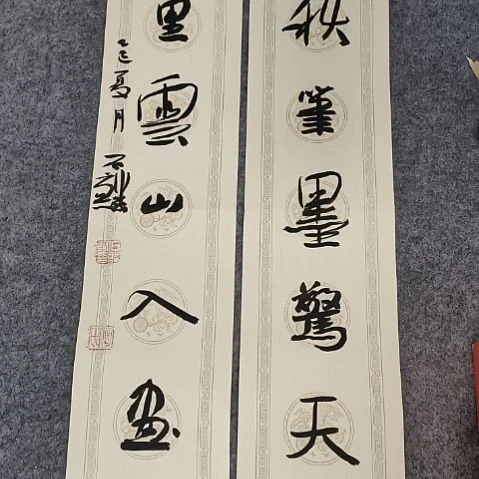 秋筆墨驚天
里雲山入画
乙巳夏月